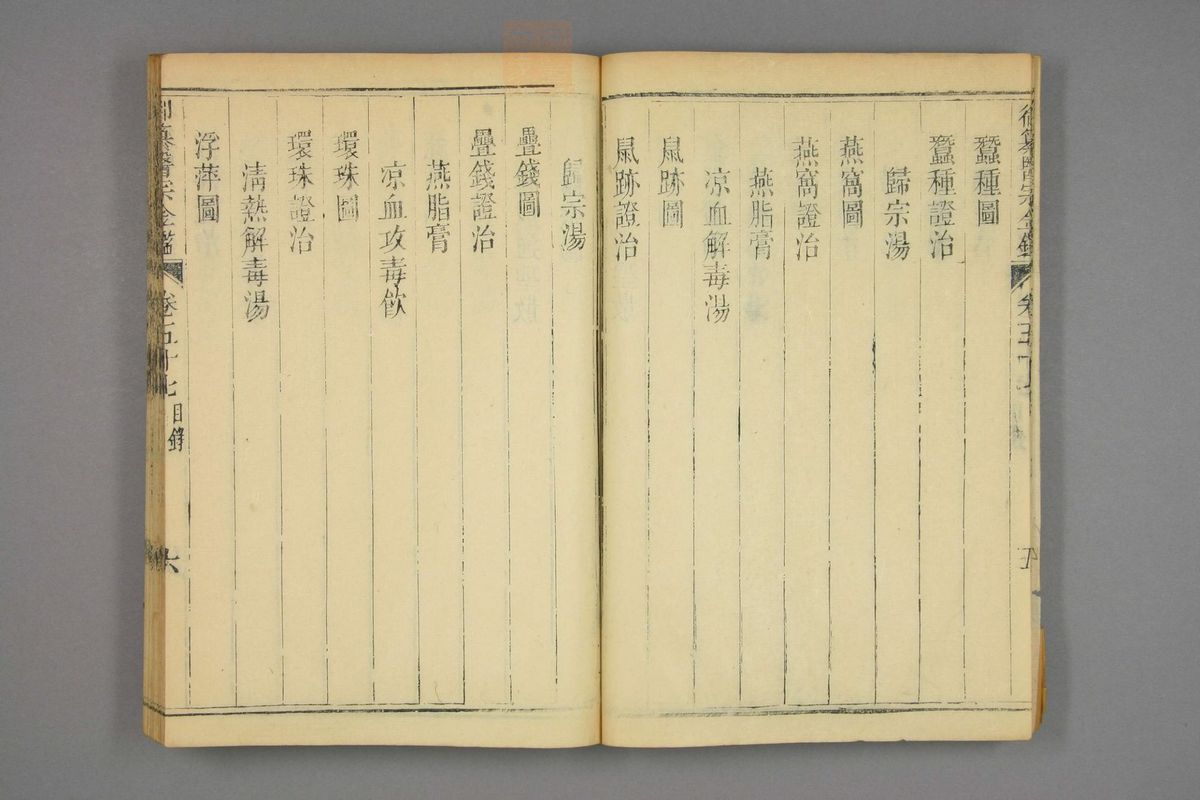 蠶種圖
蠶種證治
歸宗湯
燕窩圖
燕窩證治
燕脂膏
凉血解毒湯
鼠跡圖
鼠跡證治
歸宗湯
疊錢圖
疊錢證治
燕脂膏
凉血攻毒飲
環珠圖
環珠證治
清熱解毒湯
浮萍圖
御纂醫宗金鑑
卷五十七
目錄
六